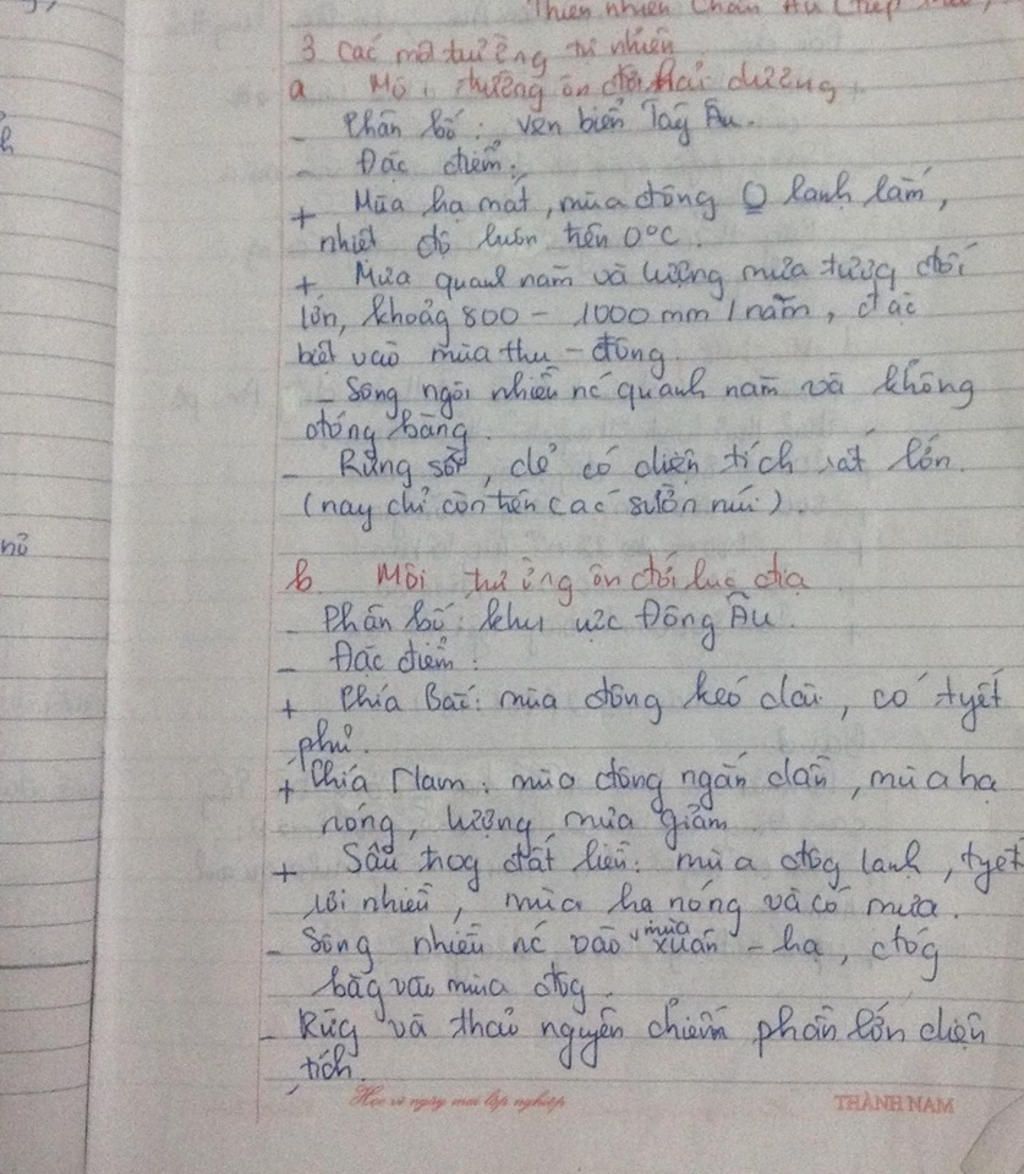 Thiên nhiên Châu Âu (tiếp theo)
3 Các môi trường tự nhiên
a Môi trường ôn đới hải dương
- Phân bố: ven biển Tây Âu.
- Đặc điểm:
+ Mùa hạ mát, mùa đông O lạnh lắm,
nhiệt độ luôn trên 0°C.
+ Mưa quanh năm và lượng mưa tương đối
lớn, khoảg 800 - 1000 mm/năm, đặc
biệt vào mùa thu - đông.
- Sông ngòi nhiều nc quanh năm và không
đóng băng.
- Rừng sồi, dẻ có diện tích rất lớn.
(nay chỉ còn trên các sườn núi).
b Môi trường ôn đới lục địa
- Phân bố: khu vực Đông Âu.
- Đặc điểm:
+ Phía Bắc: mùa đông kéo dài, có tyết
phủ.
+ Phía Nam: mùa đông ngắn dần, mùa hạ
nóng, lượng mưa giảm
+ Sâu trog đất liền: mùa đôg lạnh, tyết
rơi nhiều, mùa hạ nóng và có mưa.
- Sông nhiều nc vào mùa xuân - hạ, đóg
băg vào mùa đôg.
- Rừg và thảo nguyên chiếm phần lớn diện
tích.
Học vì ngày mai lập nghiệp
THÀNH NAM